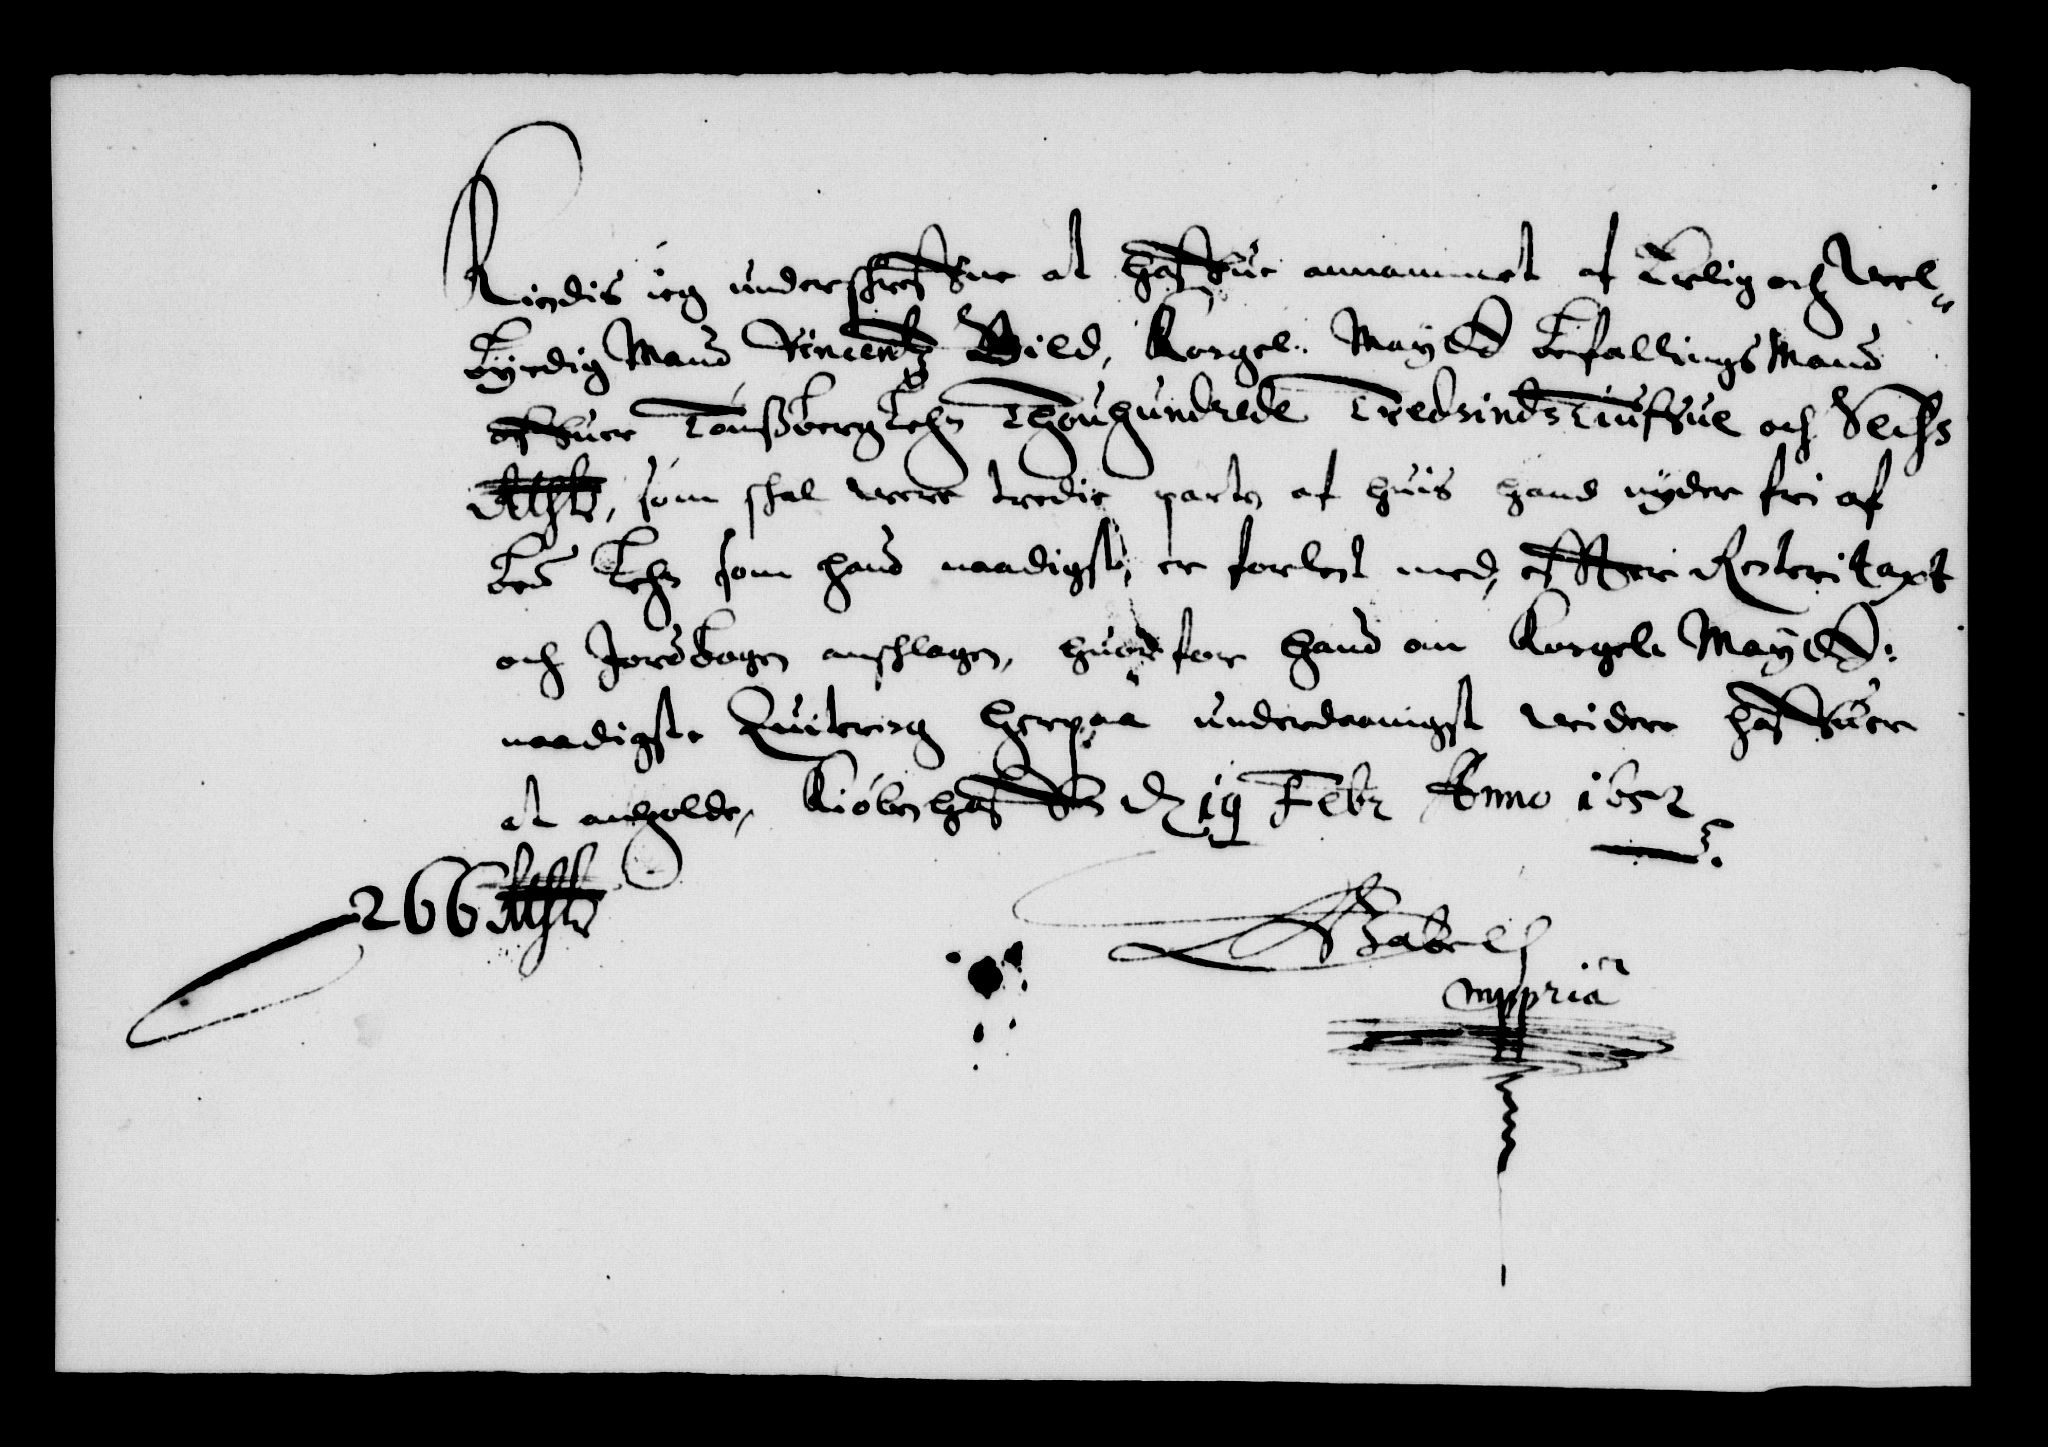 Kiendis ieg underschreffne at haffue annammet af Erlig och Vel-
byrdig Mand Vincentz Bild, Kongel: Maytts befallings Mand
offuer Tønßberg Lehn Thouhundrede Tredsinds Tiuffue och Sechs
Rthlr, som schal vere tredie parten af huis hand nyder fri af
bete Lehn som hand naadigste er forlent med, effter Renteri taxt
och Jordbogen anschlagen, huorfor hand om Kongel: Maytts:
naadigste Quitering herpaa underdaanigst videre haffuer
at anholde, Kiøbenhaffn dn 19 Febr Anno 1652
266 Rthlr
G Gabell
mppria